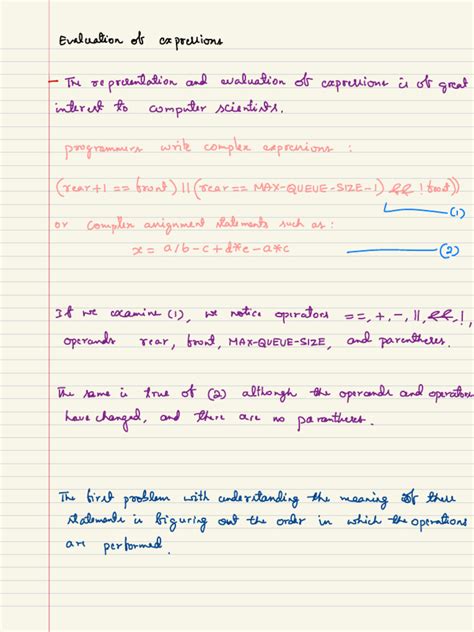 Evaluation of expressions
- The representation and evaluation of expressions is of great
interest to computer scientists.
programmers write complex expressions :
(rear+1 == front) || (rear == MAX-QUEUE-SIZE-1) && ! front))
(1)
or complex assignment statements such as :
x = a/b-c+d*e-a*c
(2)
If we examine (1), we notice operators ==, +, -, ||, &&, !,
operands rear, front, MAX-QUEUE-SIZE, and parentheses.
The same is true of (2) although the operands and operators
have changed, and there are no parantheses.
The first problem with understanding the meaning of these
statements is figuring out the order in which the operations
are performed.